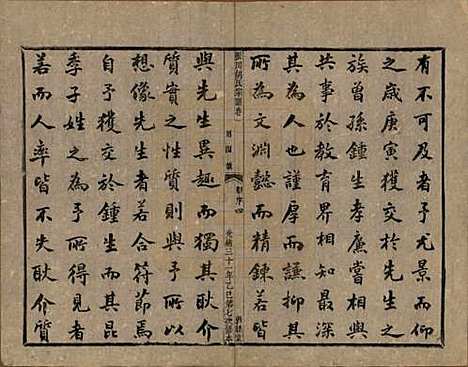 有不可及者予尤景而仰
之歲庚寅獲交於先生之
族曾孫鍾生孝廉嘗相與
共事於教育界相知最深
其為人也謹厚而謙抑其
所為文淵懿而精鍊若皆
氏宗譜卷
序 四
光緒三十一年乙巳第七次修本
與先生異趣而獨其耿介
質實之性質則與予所以
想像先生者若合符節焉
自予獲交於鍾生而其昆
季子姓之為予所得見者
若而人率皆不失耿介質